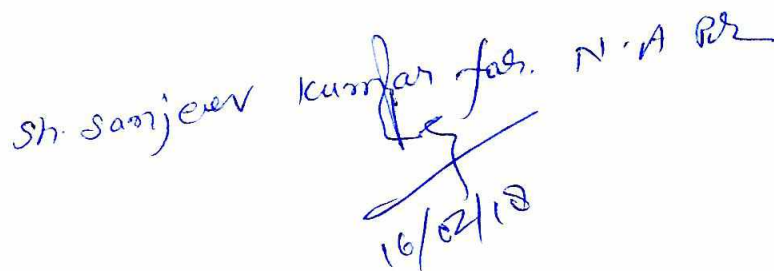 Sh. Sanjeev Kumar for. N.A
16/02/18